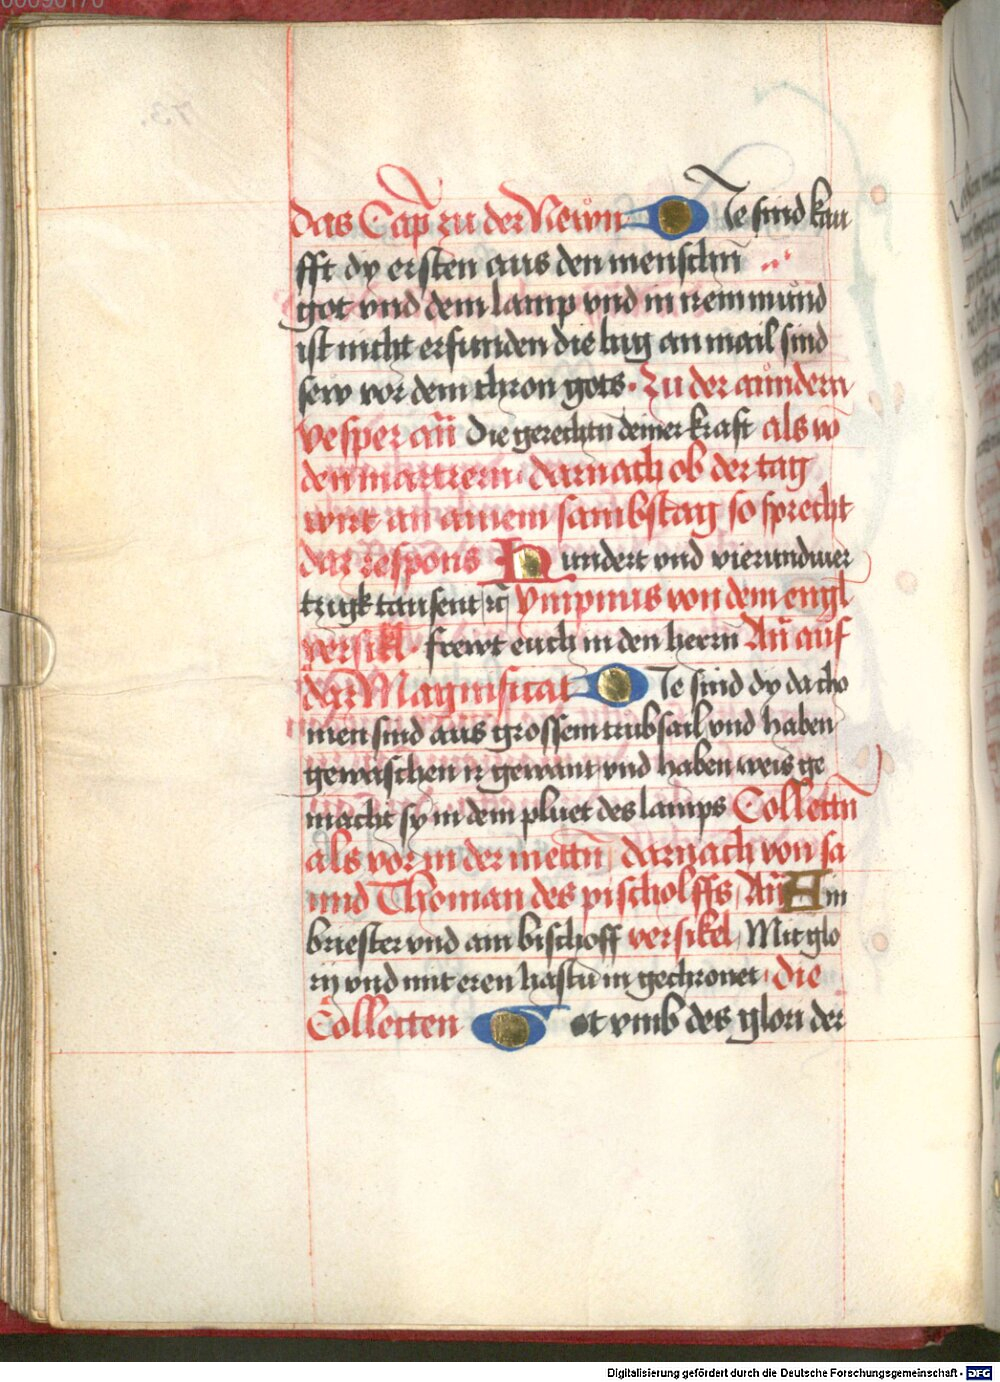 00090170
das Cap̄ zu der Newn Die sind kau
fft dy ersten aus den menschn
got vnd dem lamp vnd in irem mund
ist nicht erfunden die lug an mail sind
sew vor dem thron gots. Zu der anndern
vesper an̄ Die gerechtn deiner kraft als vō
den martrern. darnach ob der tag
wirt an ainem sambstag so sprecht
daz respons Hundert vnd vierundwier
tzigk tausent rc̄ Ympnus von dem engl
versikl. frewt euch in den herrn An̄ auf
daz Magnificat Die sind dy da cho
men sind aus grossem trubsail vnd haben
gewaschen ir gewant vnd haben weis ge
macht sy in dem pluet des lamps Collettn
als vor in der mettn darnach von sa
nnd Thoman des pischolffs An̄ Ain
briester vnd ain bischoff versikel Mit glo
rij vnd mit eren hastu in gechronet. die
Colletten Got vmb des glori der
Digitalisierung gefördert durch die Deutsche Forschungsgemeinschaft - DFG